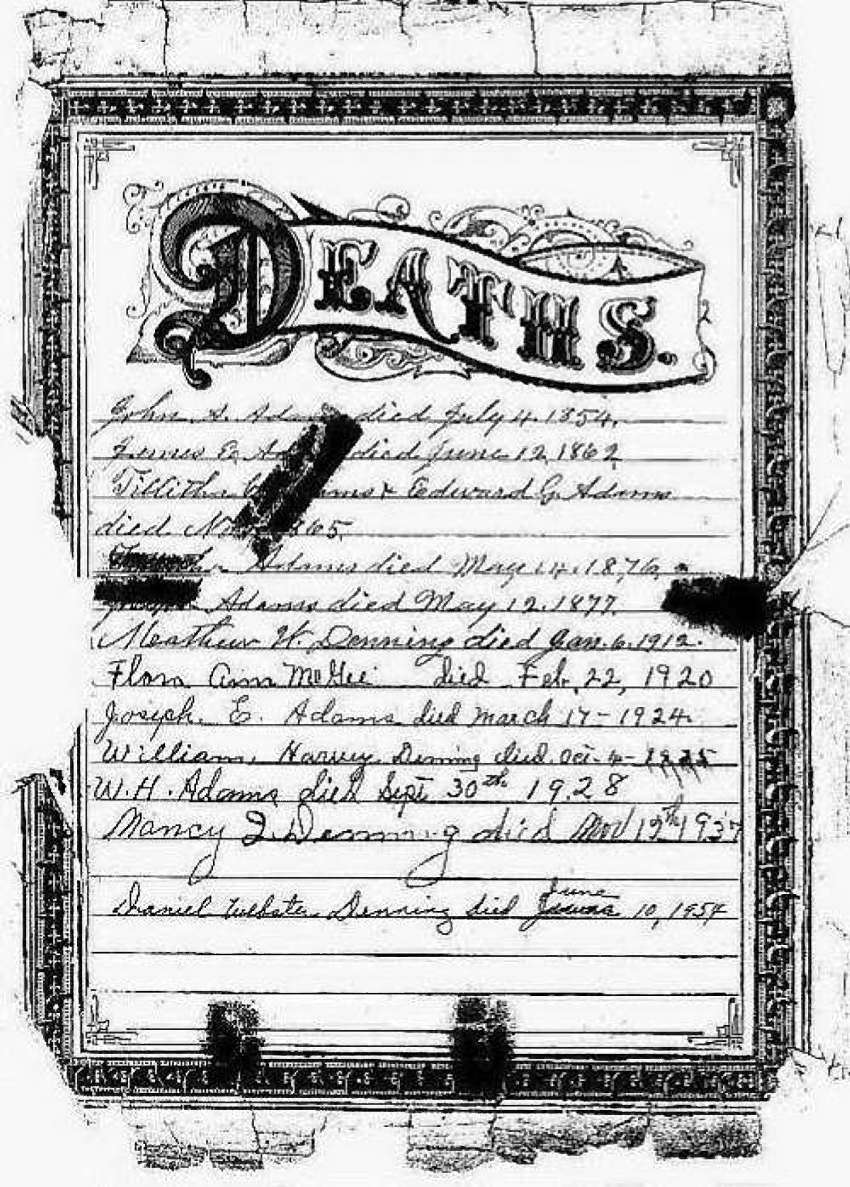 DEATHS.
John S. Adams died July 4. 1854.
James E. died June 12, 1862
Edward G. Adams
died 1865.
Adams died May 14. 1876
Adams died May 12. 1877.
Meathew W. Denning died Jan. 6. 1912.
Flora Ann McGee died Feb. 22, 1920
Joseph. E. Adams died March 17 - 1924.
William, Harvey, Denning died. Oct. 1925
W. H. Adams died Sept 30th 1928
Nancy J. Denning died Nov 12th 1937
Daniel Webster Denning died June 10, 1954